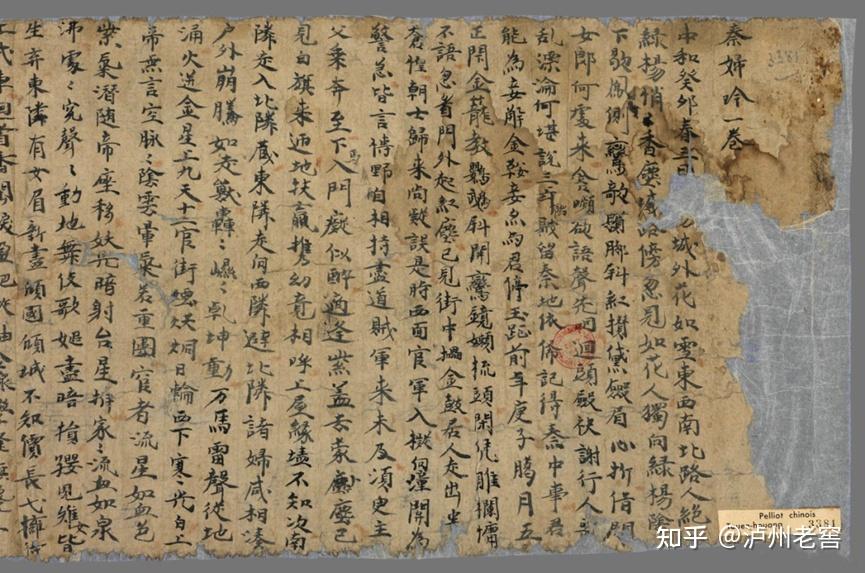 秦婦吟一卷
中和癸卯春三月 城外花如雪東西南北路人絕
綠楊悄〻香塵滅路傍忽見如花人獨向綠楊陰
下歇鳳側鸞欹鬢脚斜紅攢黛斂眉心折借問
女郎何處來含嚬欲語聲先咽迴頭斂袂謝行人喪
亂漂淪何堪說三年陷賊留秦地依俙記得秦中事君
能為妾解金鞍妾亦為君停玉趾前年庚子臘月五
正閉金籠教鸚鵡斜開鸞鏡嬾梳頭閑凭雕欄慵
不語忽看門外起紅塵已見街中擂金鼓居人走出半
倉惶朝士歸來尚疑誤是時西面官軍入擬向潼關為
警急皆言博野自相持盡道賊軍來未及須臾主
父乘奔至下馬入門癡似醉適逢紫蓋去蒙塵已
見白旗來迊地扶羸携幼竟相呼上屋緣墻不知次南
隣走入北隣藏東隣走向西隣避北隣諸婦咸相湊
户外崩騰如走獸轟〻 〻乾坤動万馬雷聲從地
涌火迸金星上九天十二官街煙烘烔日輪西下寒光白上
帝無言空脉〻陰雲暈氣若重圍宦者流星如血色
紫氣潛隨帝座移妖光暗射台星拆家〻流血如泉
沸處〻寃聲〻動地舞伎歌姬盡暗捐嬰兒稚女皆
生弃東隣有女眉新畫傾國傾城不知價長戈擁得
上戎車迴首香閨淚盈把
3381
Pelliot chinois
Touen-houang 3381
知乎 @泸州老窖